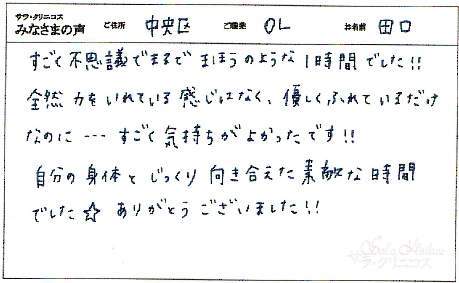 サラ・クリニコス
みなさまの声 ご住所 中央区 ご職業 OL お名前 田口
すごく不思議でまるでまほうのような1時間でした!!
全然力をいれている感じはなく、優しくふれているだけ
なのに --- すごく気持ちがよかったです!!
自分の身体とじっくり向き合えた素敵な時間
でした☆ ありがとうございました!!
サラ・クリニコス